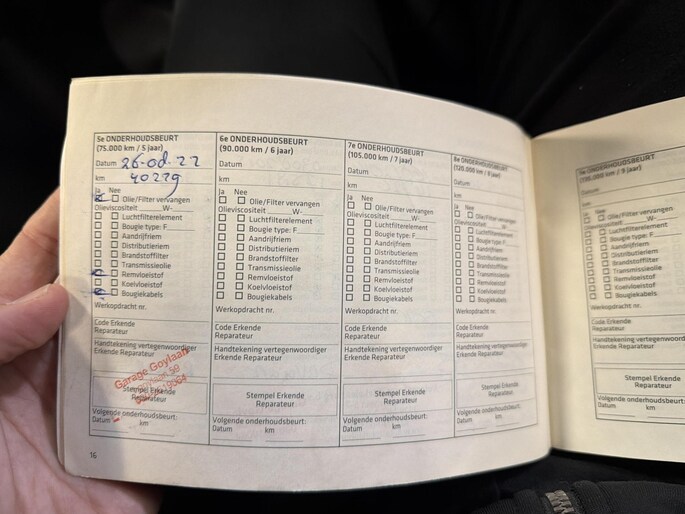 5e ONDERHOUDSBEURT
(75.000 km / 5 jaar)
Datum
km 40229
Ja Nee
Olie/Filter vervangen
Olieviscositeit W-
Luchtfilterelement
Bougie type: F
Aandrijfriem
Distributieriem
Brandstoffilter
Transmissieolie
Remvloeistof
Koelvloeistof
Bougiekabels
Werkopdracht nr.
Code Erkende
Reparateur
Handtekening vertegenwoordiger
Erkende Reparateur
Garage Goylaan
Stempel Erkende
Reparateur
Volgende onderhoudsbeurt:
Datum km
16
6e ONDERHOUDSBEURT
(90.000 km / 6 jaar)
Datum
km
Ja Nee
Olie/Filter vervangen
Olieviscositeit W-
Luchtfilterelement
Bougie type: F
Aandrijfriem
Distributieriem
Brandstoffilter
Transmissieolie
Remvloeistof
Koelvloeistof
Bougiekabels
Werkopdracht nr.
Code Erkende
Reparateur
Handtekening vertegenwoordiger
Erkende Reparateur
Stempel Erkende
Reparateur
Volgende onderhoudsbeurt:
Datum km
7e ONDERHOUDSBEURT
(105.000 km / 7 jaar)
Datum
km
Ja Nee
Olie/Filter vervangen
Olieviscositeit W-
Luchtfilterelement
Bougie type: F
Aandrijfriem
Distributieriem
Brandstoffilter
Transmissieolie
Remvloeistof
Koelvloeistof
Bougiekabels
Werkopdracht nr.
Code Erkende
Reparateur
Handtekening vertegenwoordiger
Erkende Reparateur
Stempel Erkende
Reparateur
Volgende onderhoudsbeurt:
Datum km
8e ONDERHOUDSBEURT
(120.000 km / 8 jaar)
Datum
km
Ja Nee
Olie/Filter vervangen
Olieviscositeit W-
Luchtfilterelement
Bougie type: F
Aandrijfriem
Distributieriem
Brandstoffilter
Transmissieolie
Remvloeistof
Koelvloeistof
Bougiekabels
Werkopdracht nr.
Code Erkende
Reparateur
Handtekening vertegenwoordiger
Erkende Reparateur
Stempel Erkende
Reparateur
Volgende onderhoudsbeurt:
Datum km
9e ONDERHOUDSBEURT
(135.000 km / 9 jaar)
Datum
km
Ja Nee
Olie/Filter vervangen
Olieviscositeit W-
Luchtfilterelement
Bougie type: F
Aandrijfriem
Distributieriem
Brandstoffilter
Transmissieolie
Remvloeistof
Koelvloeistof
Bougiekabels
Werkopdracht nr.
Code Erkende
Reparateur
Handtekening vertegenwoordiger
Erkende Reparateur
Stempel Erkende
Reparateur
Volgende onderhoudsbeurt:
Datum km